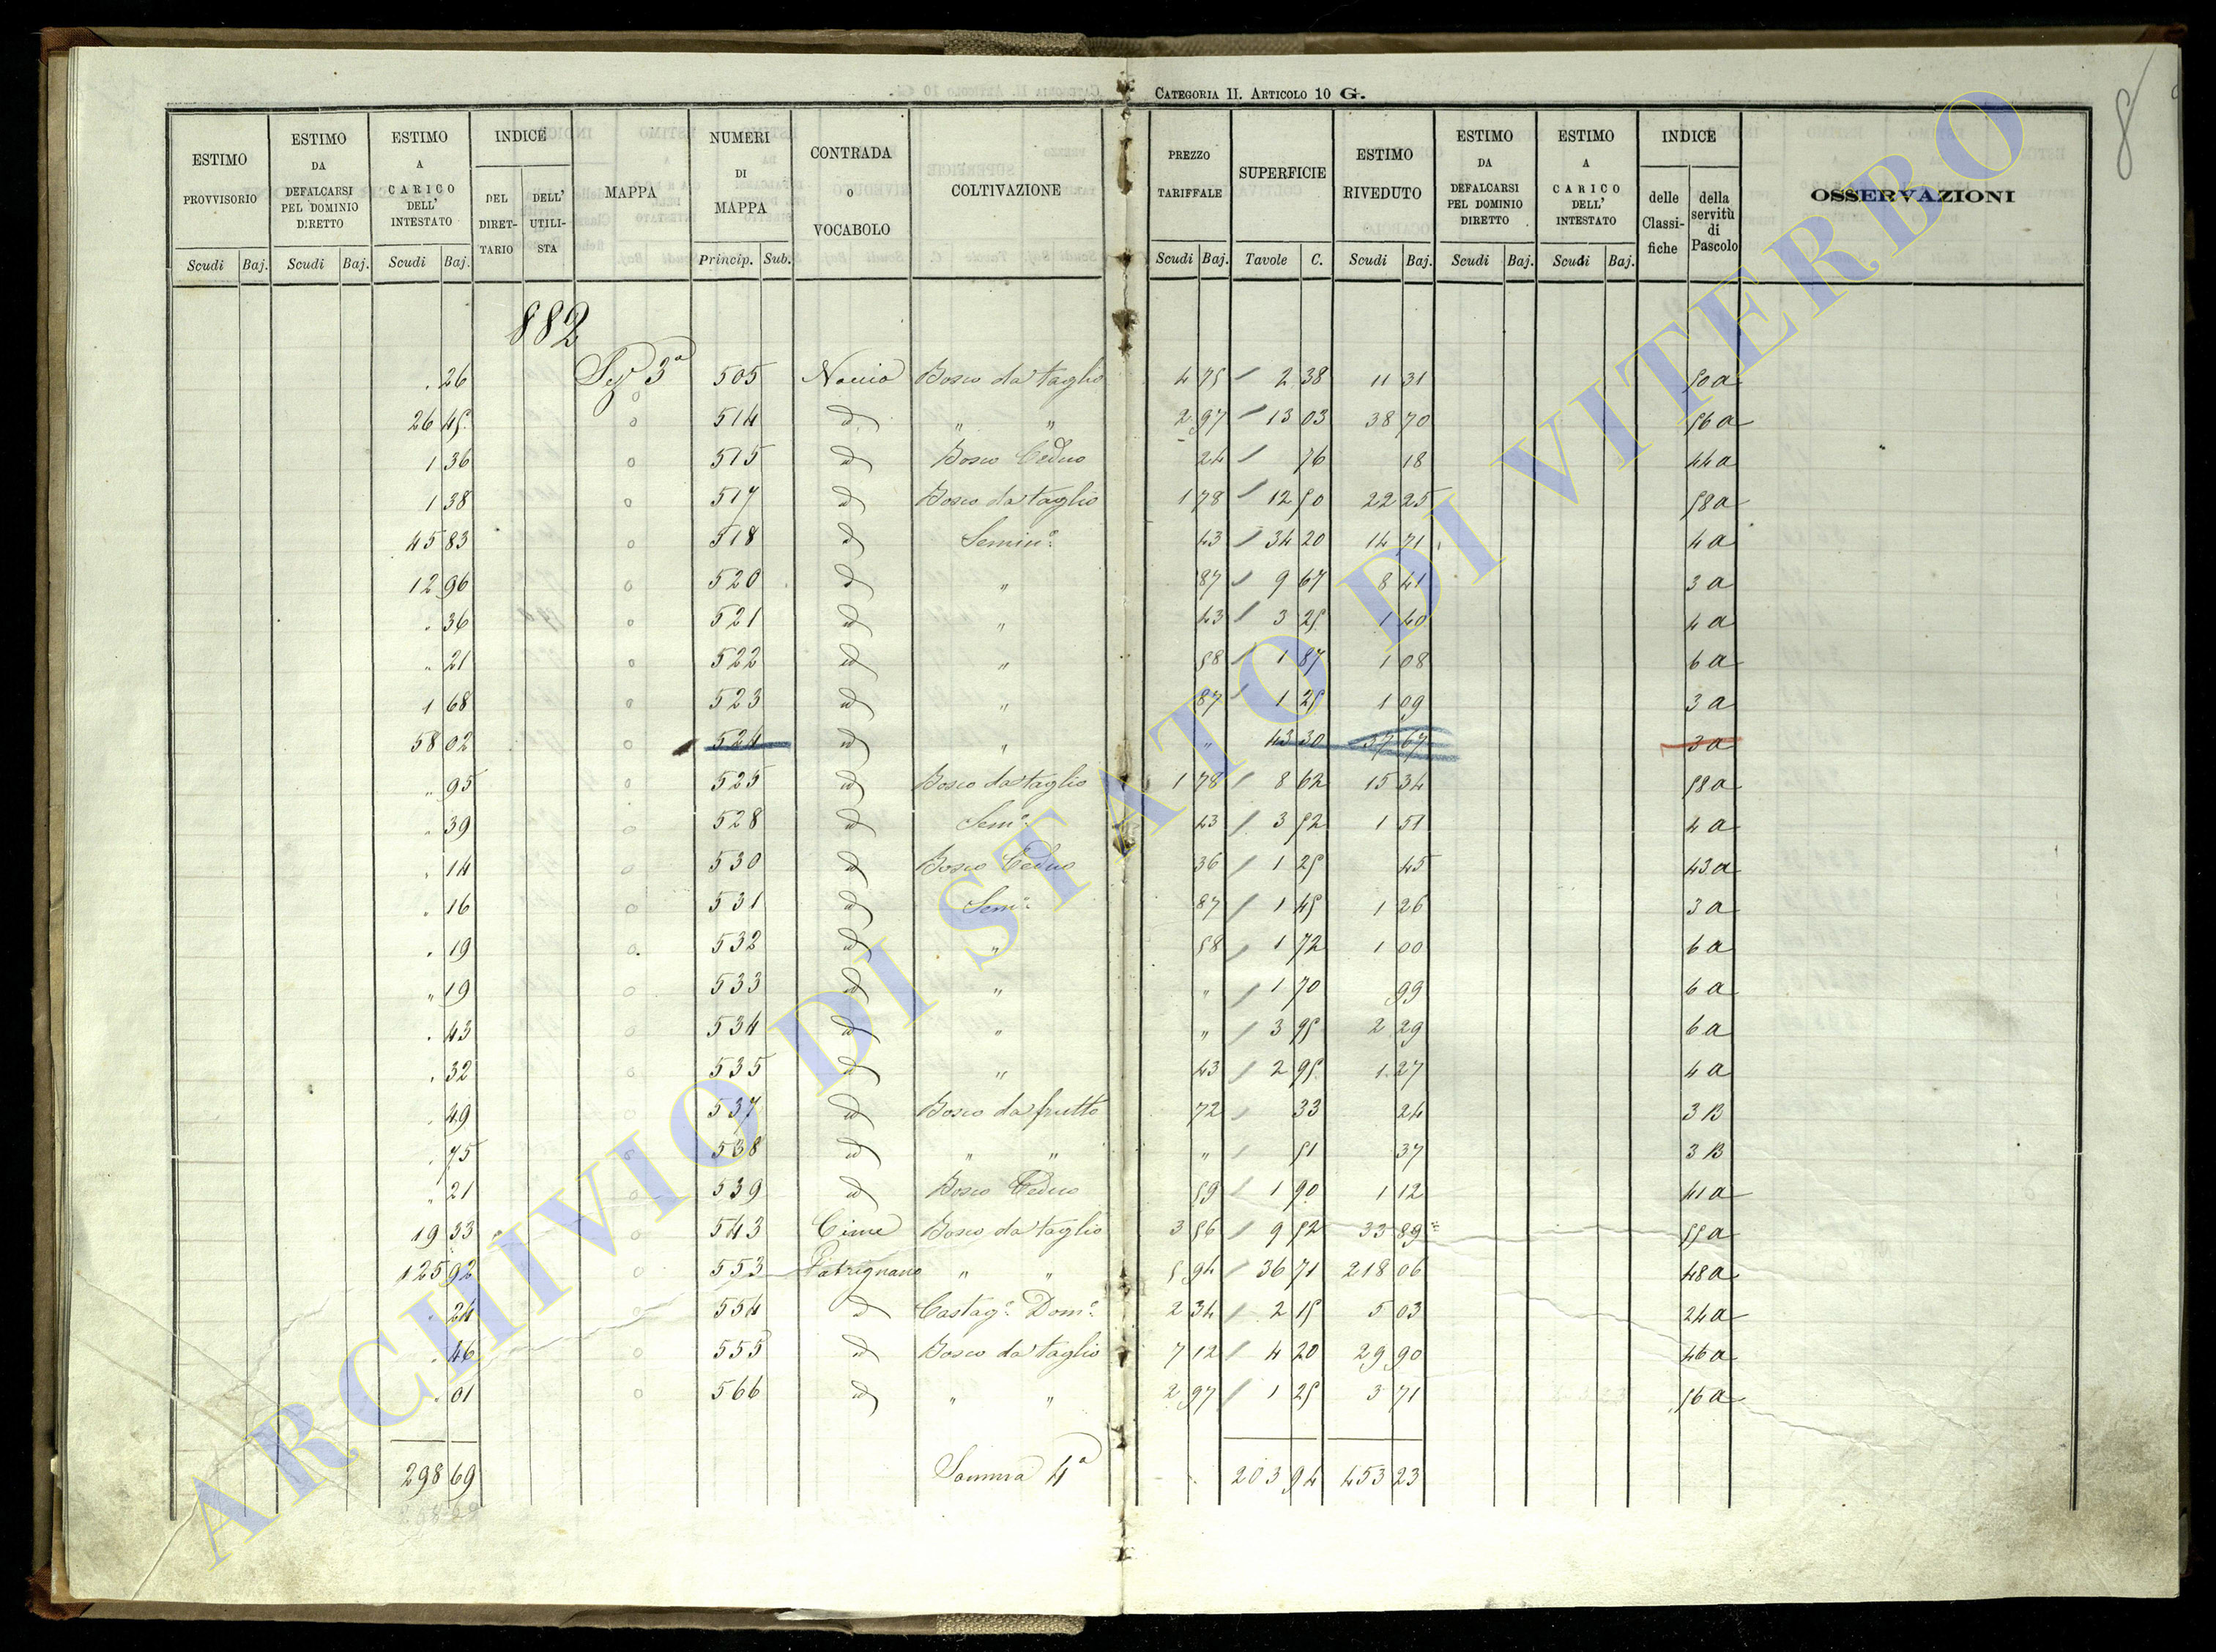 CATEGORIA II. ARTICOLO 10 G.
8
ESTIMO PROVVISORIO Scudi Baj.
ESTIMO DA DEFALCARSI PEL DOMINIO DIRETTO Scudi Baj.
ESTIMO A CARICO DELL' INTESTATO Scudi Baj.
INDICE DEL DIRETTARIO DELL' UTILISTA
MAPPA
NUMERI DI MAPPA Princip. Sub.
CONTRADA o VOCABOLO
COLTIVAZIONE
PREZZO TARIFFALE Scudi Baj.
SUPERFICIE Tavole C.
ESTIMO RIVEDUTO Scudi Baj.
ESTIMO DA DEFALCARSI PEL DOMINIO DIRETTO Scudi Baj.
ESTIMO A CARICO DELL' INTESTATO Scudi Baj.
INDICE delle Classifiche della servitù di Pascolo
OSSERVAZIONI
882
. 26 Sez 3a 505 Bosco da taglio 4 75 2 38 11 31 50 a
26 45 514 d " " 2 97 13 03 38 70 56 a
1 36 515 id Bosco Ceduo 24 76 18 44 a
1 38 517 id Bosco da taglio 1 78 12 50 22 25 58 a
45 83 518 id Semino 43 34 20 14 71 4 a
12 96 520 id " 87 9 67 8 41 3 a
. 36 521 id " 43 3 25 1 40 4 a
" 21 522 id " 58 1 87 1 08 6 a
1 68 523 id " 87 1 25 1 09 3 a
58 02 524 id " " 43 30 37 67 3 a
" 95 525 id Bosco da taglio 1 78 8 62 15 34 58 a
. 39 528 id Semo 43 3 52 1 51 4 a
. 14 530 id Bosco Ceduo 36 1 25 45 43 a
. 16 531 id Semo 87 1 45 1 26 3 a
. 19 532 id " 58 1 72 1 00 6 a
" 19 533 id " " 1 70 99 6 a
. 43 534 id " " 3 95 2 29 6 a
. 32 535 id " 43 2 95 1 27 4 a
. 49 537 id Bosco da frutto 72 33 24 3 B
. 75 538 id " " " 51 37 3 B
" 21 539 id Bosco Ceduo 59 1 90 1 12 41 a
19 33 543 Cime Bosco da taglio 3 56 9 52 33 89 55 a
125 92 553 Patrignano " " 5 94 36 71 218 06 48 a
. 24 554 id Castago Domo 2 34 2 15 5 03 24 a
. 46 555 id Bosco da taglio 7 12 4 20 29 90 46 a
. 01 566 id " " 2 97 1 25 3 71 56 a
298 69 Somma 4a 203 94 453 23
ARCHIVIO DI STATO DI VITERBO